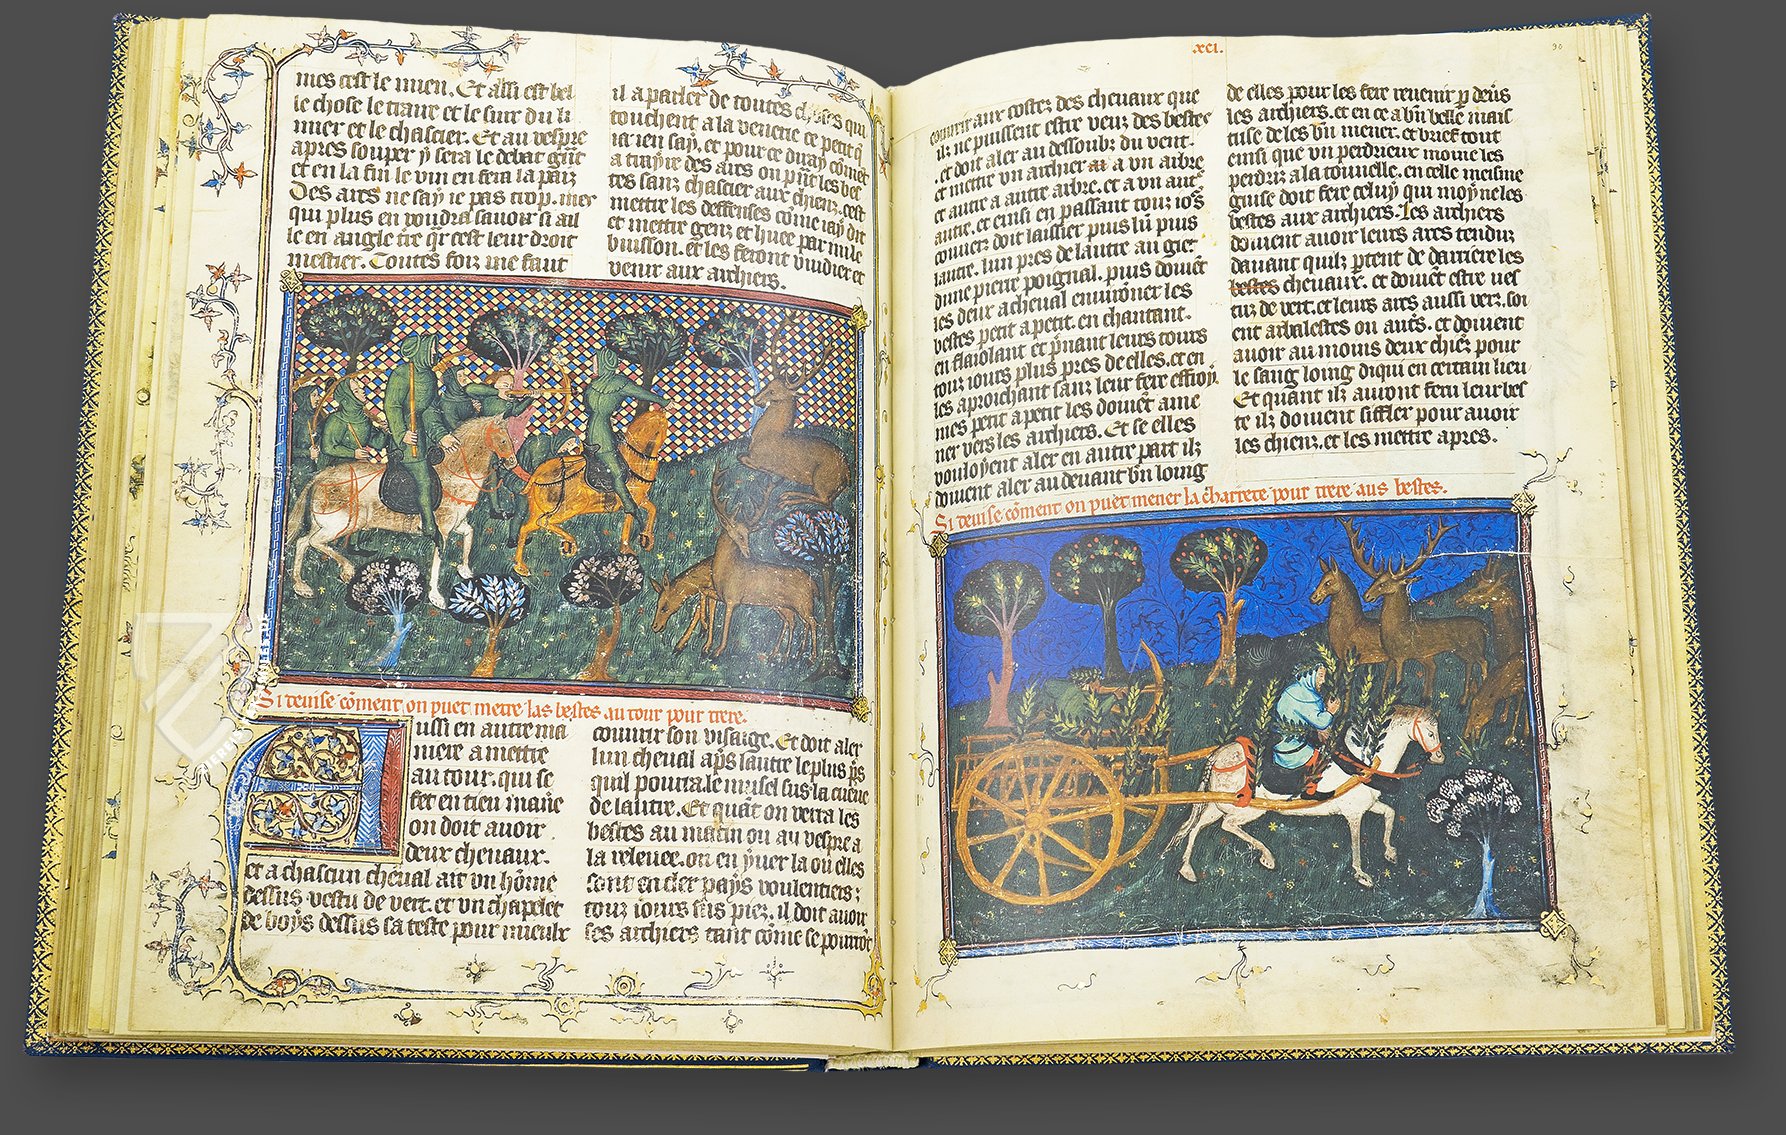 mes cest le mien. Et assi est bel
le chose le traire et le suir du li
mier et le chascier. Et au vespre
apres souper y sera le debat grãt
et en la fin le vin en fera la paiz
Des arcs ne say ie pas trop. mes
qui plus en voudra savoir si ail
le en angle tre qr cest leur droit
mestier. Toutes foiz me faut
il a parler de toutes choses qui
touchent a la venerie ce petit q̃
ie ien say. et pour ce diray cõmẽt
a trayre des arcs on puet les bes
tes sanz chascier aux chienz. cest
mettre les deffenses cõme iay dit
et mettre genz et huee par mi le
buisson. et les feront vuidier et
venir aux archiers.
Si devise cõment on puet mettre las bestes au tour pour trere.
Aussi en autre ma
niere a mettre
au tour. qui se
fet en tieu maniẽ
on doit avoir
deux chevaux.
et a chascun cheval ait vn hõme
dessus vestu de vert. et vn chapelet
de boys dessus sa teste pour mieulx
couvrir son visaige. Et doit aler
lun cheval apṣ lautre le plus pṣ
quil pourra. le musel sus la cueue
de lautre. Et quãt on verra les
bestes au matin ou au vespre a
la relevee. ou en yver la ou elles
sont en cler pays voulentiers;
touz iours sus piez. il doit avoir
ses archiers tant cõme se pourrõt
.xci.
90
couvrir aux costez des chevaux que
ilz ne puissent estre veuz des bestes
. et doit aler au dessoubz du vent.
et mettre vn archier a vn arbre
et autre a autre arbre. et a vn autr̃
autre. et einsi en passant touz io's
couvers doit laissier puis lũ puis
lautre. lun pres de lautre au giet
dune pierre poignal. puis doivẽt
les deux a cheval envirõner les
bestes petit a petit. en chantant.
en flaiolant et p̃nant leurs tours
touz iours plus pres de elles. et en
les aprochant sanz leur fere effroy.
mes petit a petit les doivẽt ame
ner vers les archiers. Et se elles
vouloyent aler en autre part ilz
doivent aler au devant bñ loing
de elles pour les fere revenir p̱ devs̃
les archiers. et en ce a bñ belle mais
trise de les bñ mener. et brief tout
einsi que vn perdrieur moine les
perdriz a la tonnelle. en celle meisme
guise doit fere celuy qui moyne les
bestes aux archiers. Les archiers
doivent avoir leurs arcs tenduz
davant quilz p̱tent de darriere les
bestes chevaux. et doivẽt estre ves
tuz de vert. et leurs arcs aussi verz. soi
ent arbalestes ou autr̃s. et doivent
avoir au moins deux chiẽz pour
le sang loing diqui en certain lieu
Et quant ilz auront feru leur bes
te ilz doivent siffler pour avoir
les chienz. et les mettre apres.
Si devise cõment on puet mener la charrete pour trere aus bestes.